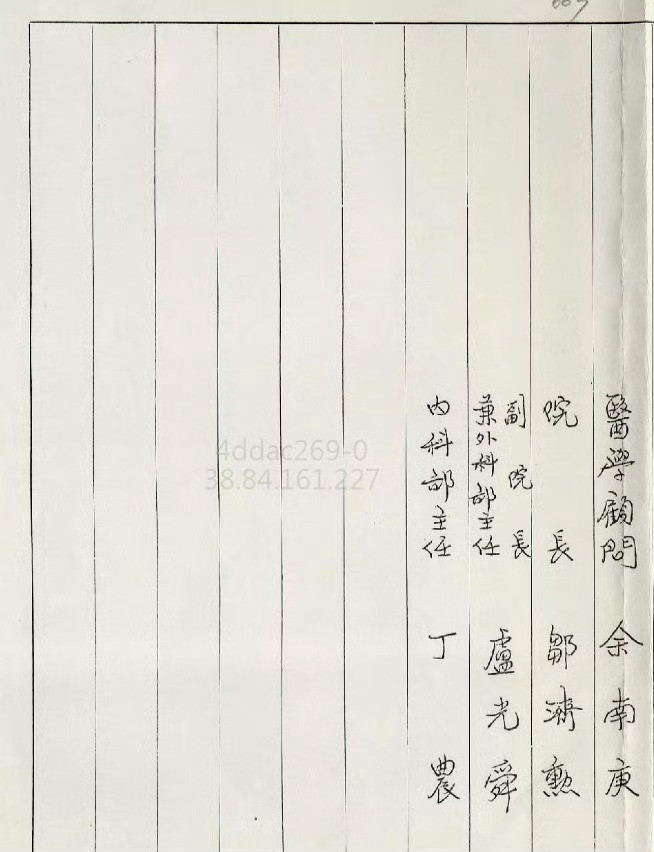 醫學顧問 余南庚
院長 鄒濟勳
副院長
兼外科部主任 盧光舜
內科部主任 丁農
4ddac269-0
38.84.161.227